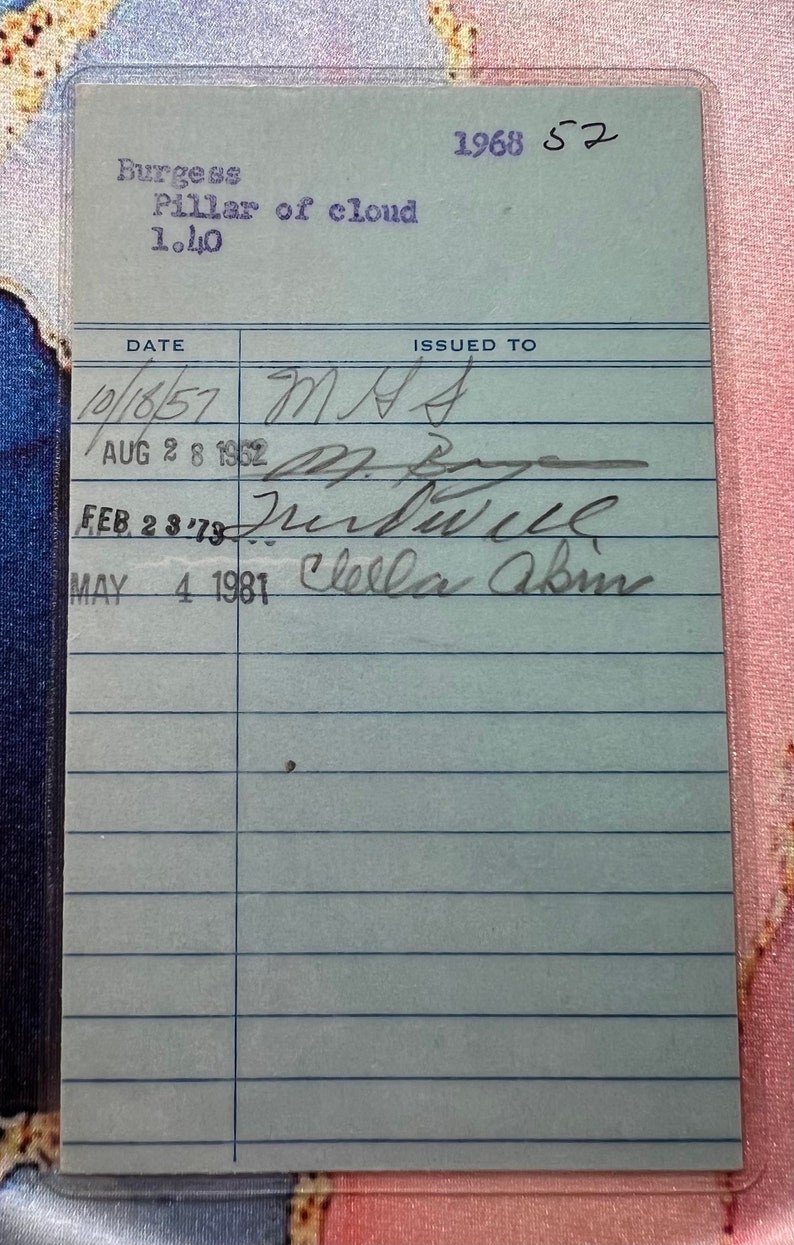 1968 52
Burgess
Pillar of cloud
1.40
DATE ISSUED TO
10/18/57 M G S
AUG 28 1962 M.
FEB 23 '73 Treadwell
MAY 4 1981 Clella Akin